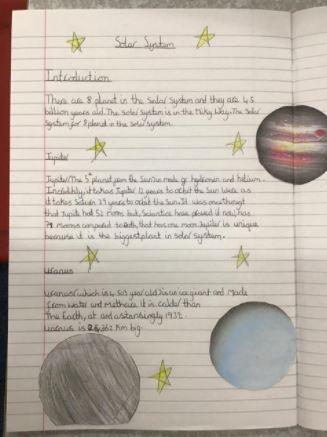 Solar System
Introduction
There are 8 planet in the Solar System and they are 4.5
billion years old. The Solar system is in the Milky Way. The Solar
system for 8 planet in the solar system.
Jupiter
Jupiter The 5th planet from the Sun is made of hydrogen and helium.
Incredibly, it takes Jupiter 12 years to orbit the Sun were as
it takes Saturn 29 years to orbit the Sun. It was once thought
that Jupiter had 52 moons but, Scientists have proved it now has
79 moons compared to Earth, that has one moon. Jupiter is unique
because it is the biggest planet in solar system.
Uranus
Uranus which is 4.503 year old is an ice giant and Made
from water and Methane. It is colder than
The Earth, at an astonishingly
Uranus is 25,362 Km big.